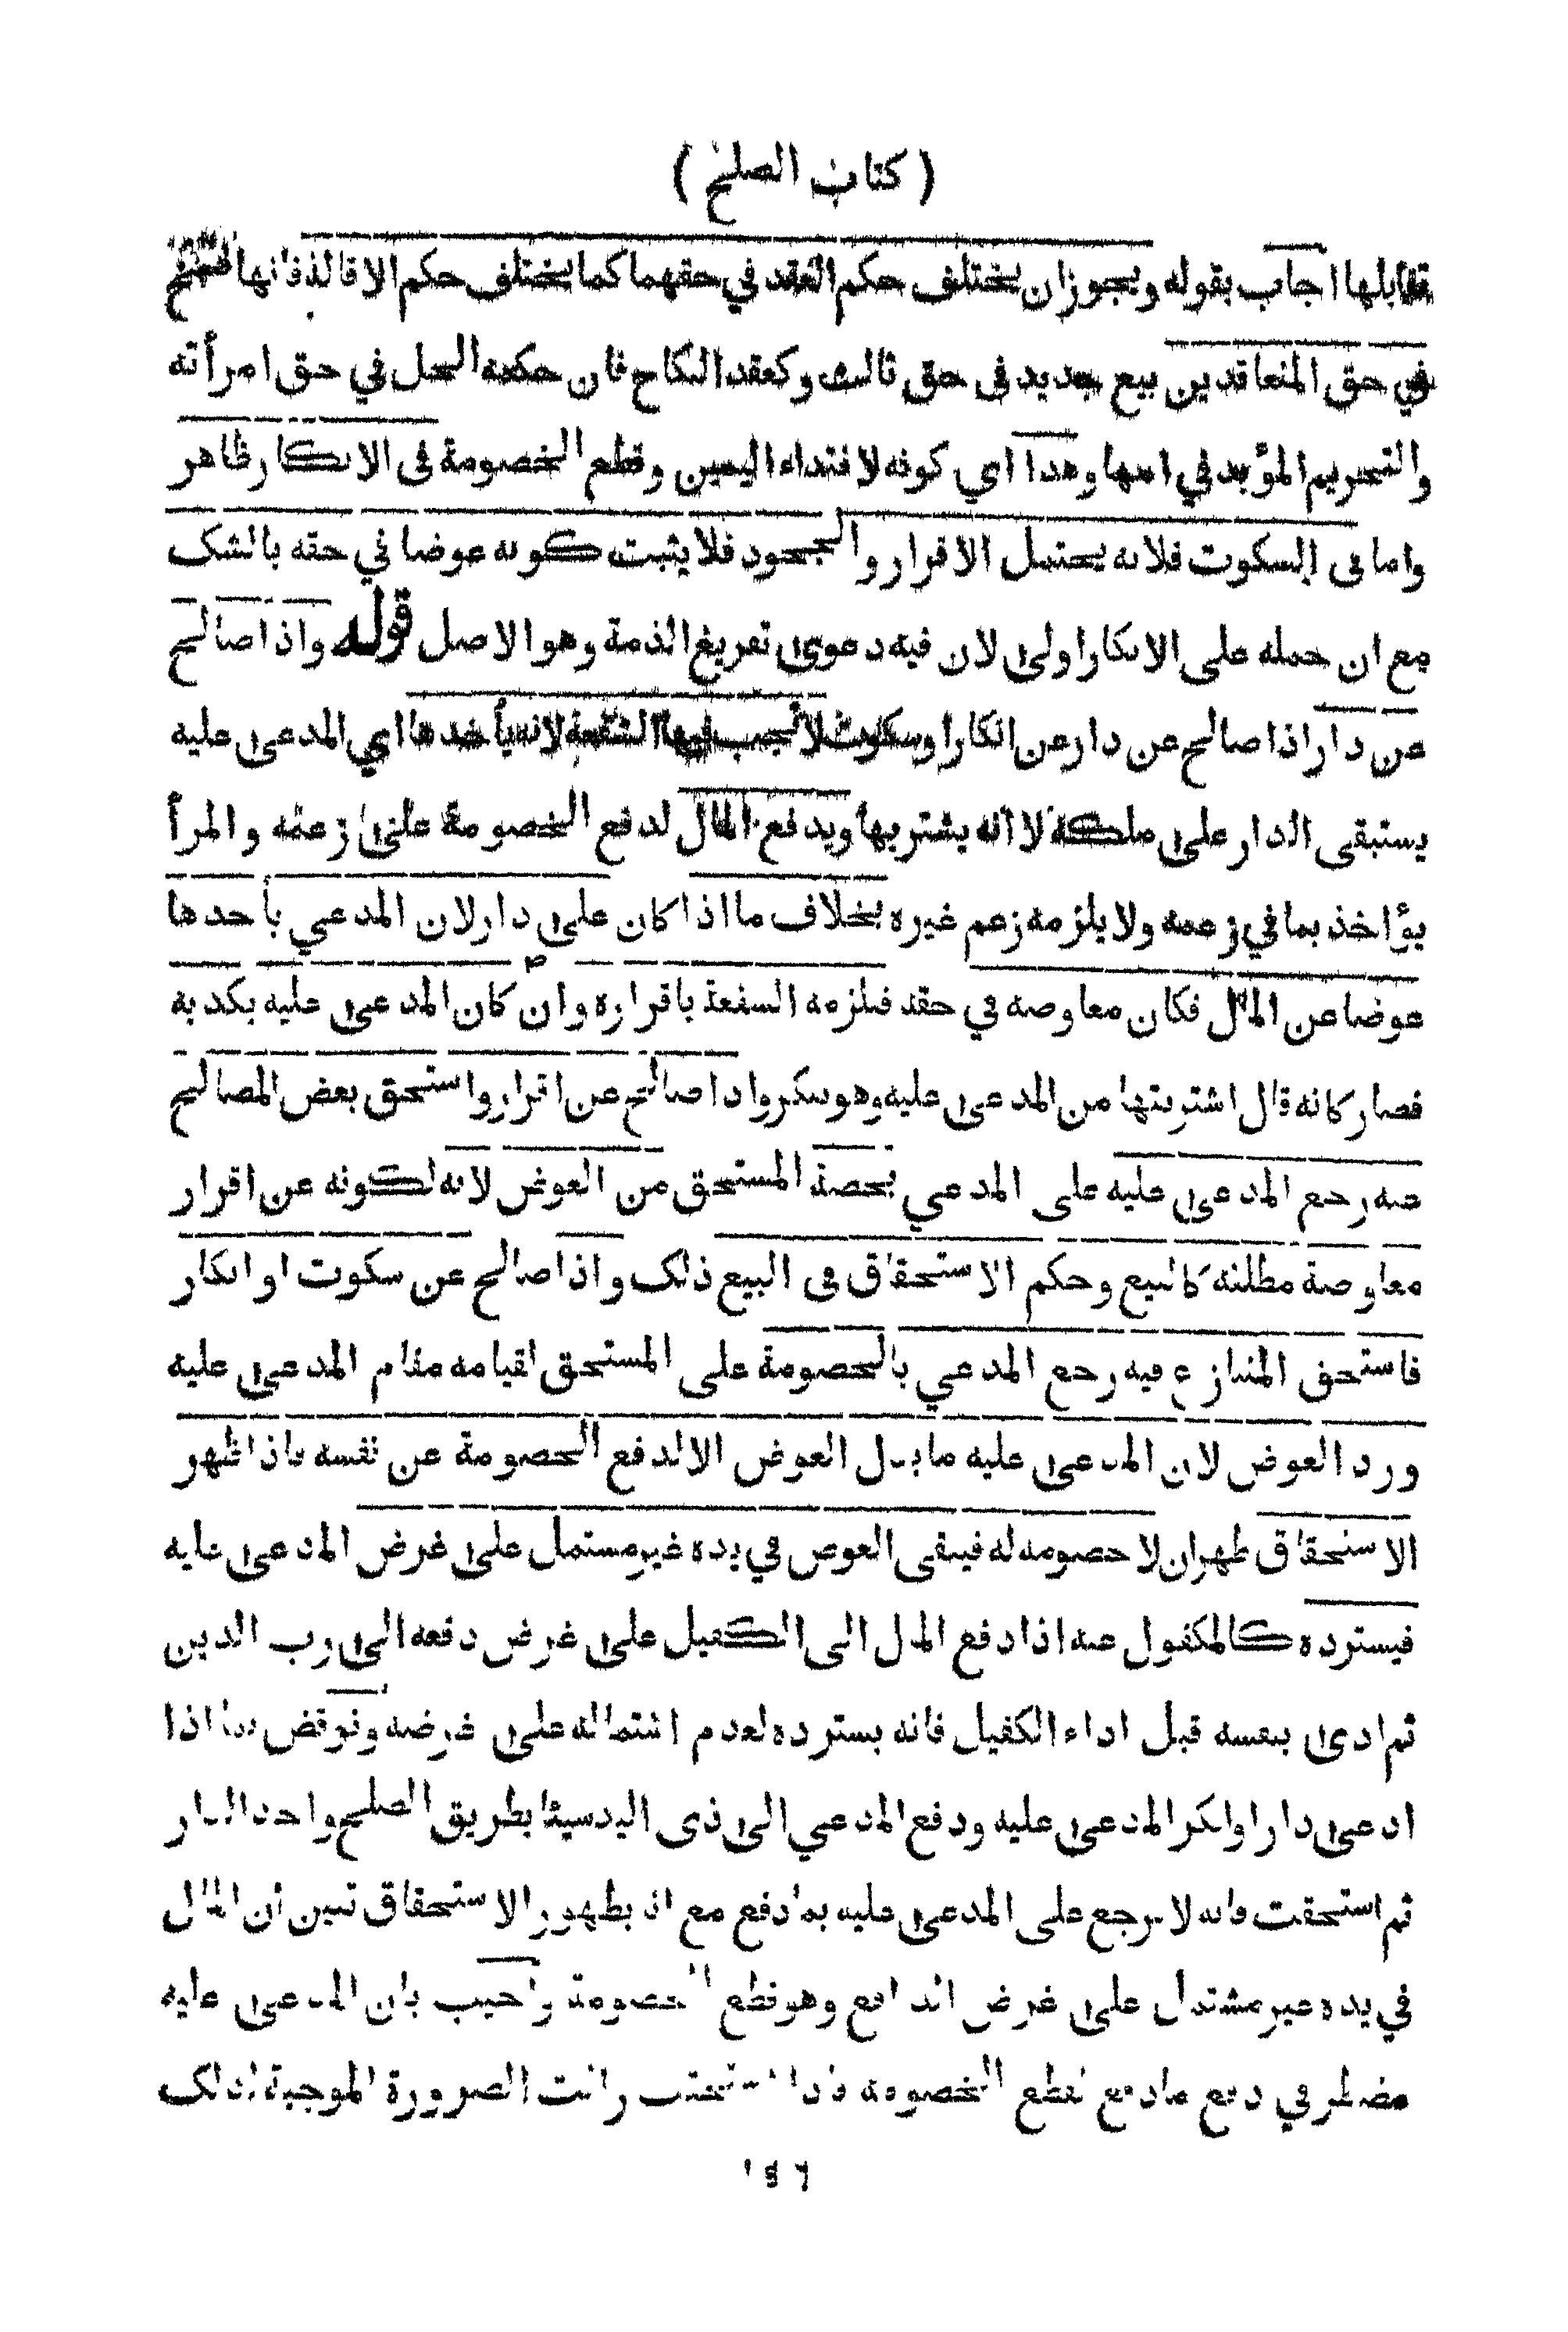 ( كتاب الصلح )
قابلها اجاب بقوله ويجوز ان يختلف حكم العقد في حقهما كما يختلف حكم الاقالة فانها فسخ
في حق المتعاقدين بيع جديد في حق ثالث وكعقد النكاح فان حكمه الحل في حق امرأته
والتحريم المؤبد في امها وهذا اي كونه لافتداء اليمين وقطع الخصومة في الانكار ظاهر
واما في السكوت فلانه يحتمل الاقرار والجحود فلا يثبت كونه عوضا في حقه بالشك
مع ان حمله على الانكار اولى لان فيه دعوى تفريغ الذمة وهو الاصل قوله واذا صالح
عن دار اذا صالح عن دار عن انكار او سكوت لا تجب فيها الشفعة لانه يأخذها اي المدعى عليه
يستبقى الدار على ملكه لا انه يشتريها ويدفع المال لدفع الخصومة على زعمه والمرأ
يؤاخذ بما في زعمه ولا يلزمه زعم غيره بخلاف ما اذا كان على دار لان المدعي يأخذها
عوضا عن المال فكان معاوضه في حقه فيلزمه الشفعة باقراره وان كان المدعى عليه يكذبه
فصار كانه قال اشتريتها من المدعى عليه وهو ينكر واذا صالح عن اقرار واستحق بعض المصالح
عنه رجع المدعى عليه على المدعي بحصة المستحق من العوض لانه لكونه عن اقرار
معاوضة مطلقه كالبيع وحكم الاستحقاق في البيع ذلك واذا صالح عن سكوت او انكار
فاستحق المتنازع فيه رجع المدعي بالخصومة على المستحق لقيامه مقام المدعى عليه
ورد العوض لان المدعى عليه ما بذل العوض الا لدفع الخصومة عن نفسه فاذا ظهر
الاستحقاق ظهر ان لا خصومه له فيبقى العوض في يده غير مشتمل على غرض المدعى عليه
فيسترده كالمكفول عنه اذا دفع المال الى الكفيل على غرض دفعه الى رب الدين
ثم ادى بنفسه قبل اداء الكفيل فانه يسترده لعدم اشتماله على غرضه ونوقض بما اذا
ادعى دارا وانكر المدعى عليه ودفع المدعي الى ذى اليد شيئا بطريق الصلح واخذ الدار
ثم استحقت فانه لا يرجع على المدعى عليه بما دفع مع ان بظهور الاستحقاق تبين ان المال
في يده غير مشتمل على غرض الدافع وهو قطع الخصومة واجيب بان المدعى عليه
مضطر في دفع ما دفع لقطع الخصومة فاذا استحقت زالت الضرورة الموجبة لذلك